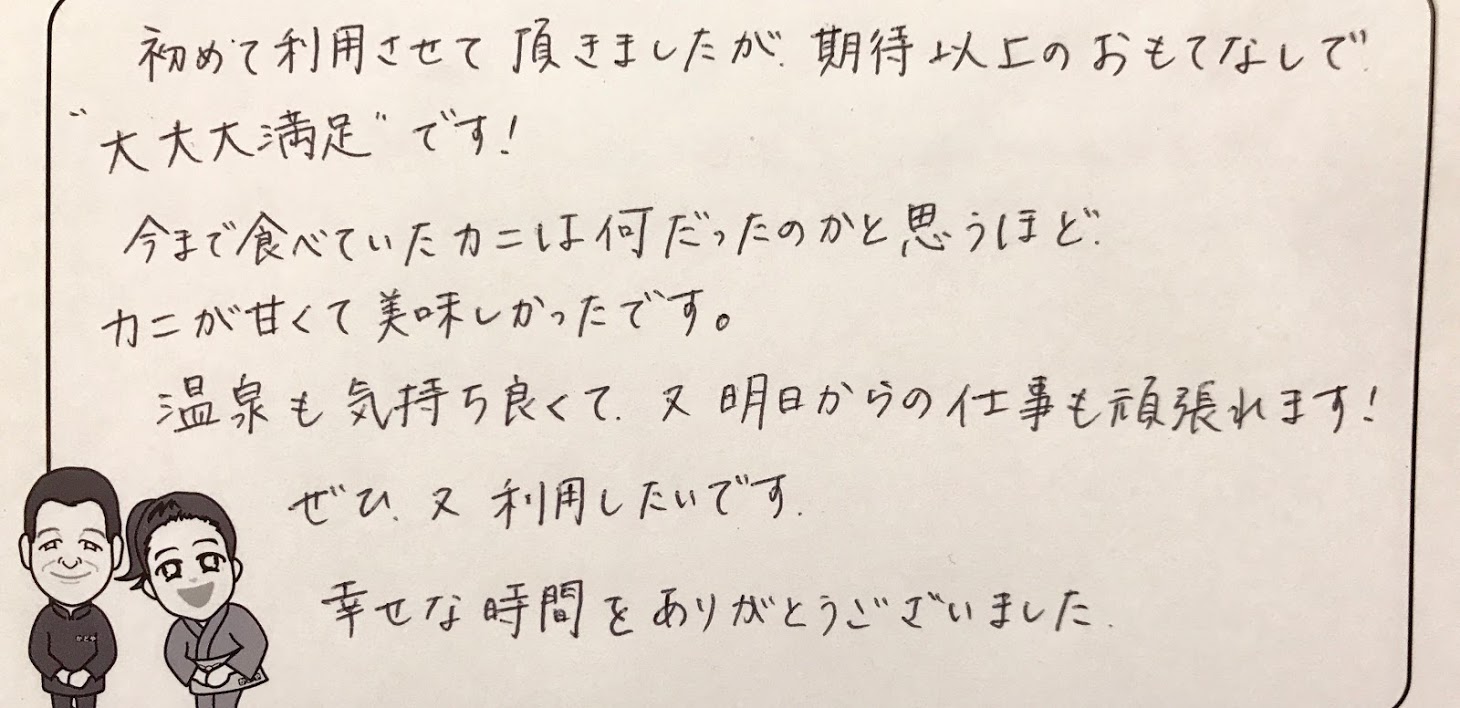 初めて利用させて頂きましたが、期待以上のおもてなしで、
"大大大満足"です!
今まで食べていたカニは何だったのかと思うほど、
カニが甘くて美味しかったです。
温泉も気持ち良くて、又明日からの仕事も頑張れます!
ぜひ、又利用したいです。
幸せな時間をありがとうございました。